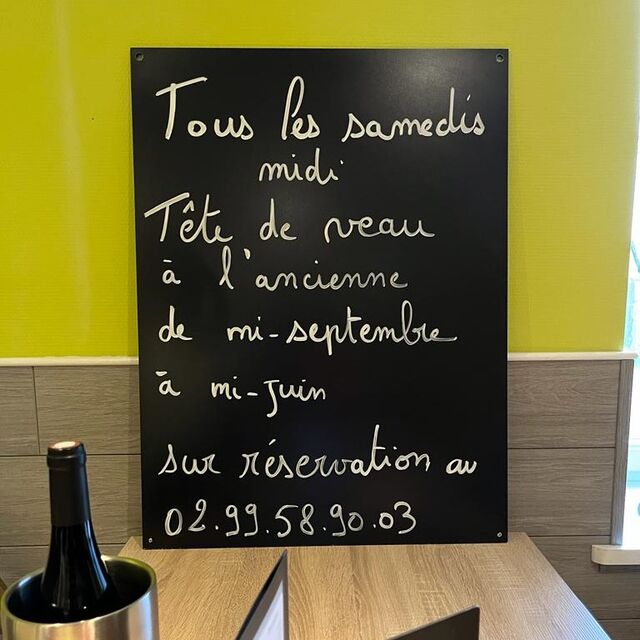 Tous les samedis
midi
Tête de veau
à l'ancienne
de mi-septembre
à mi-juin
sur réservation au
02.99.58.90.03